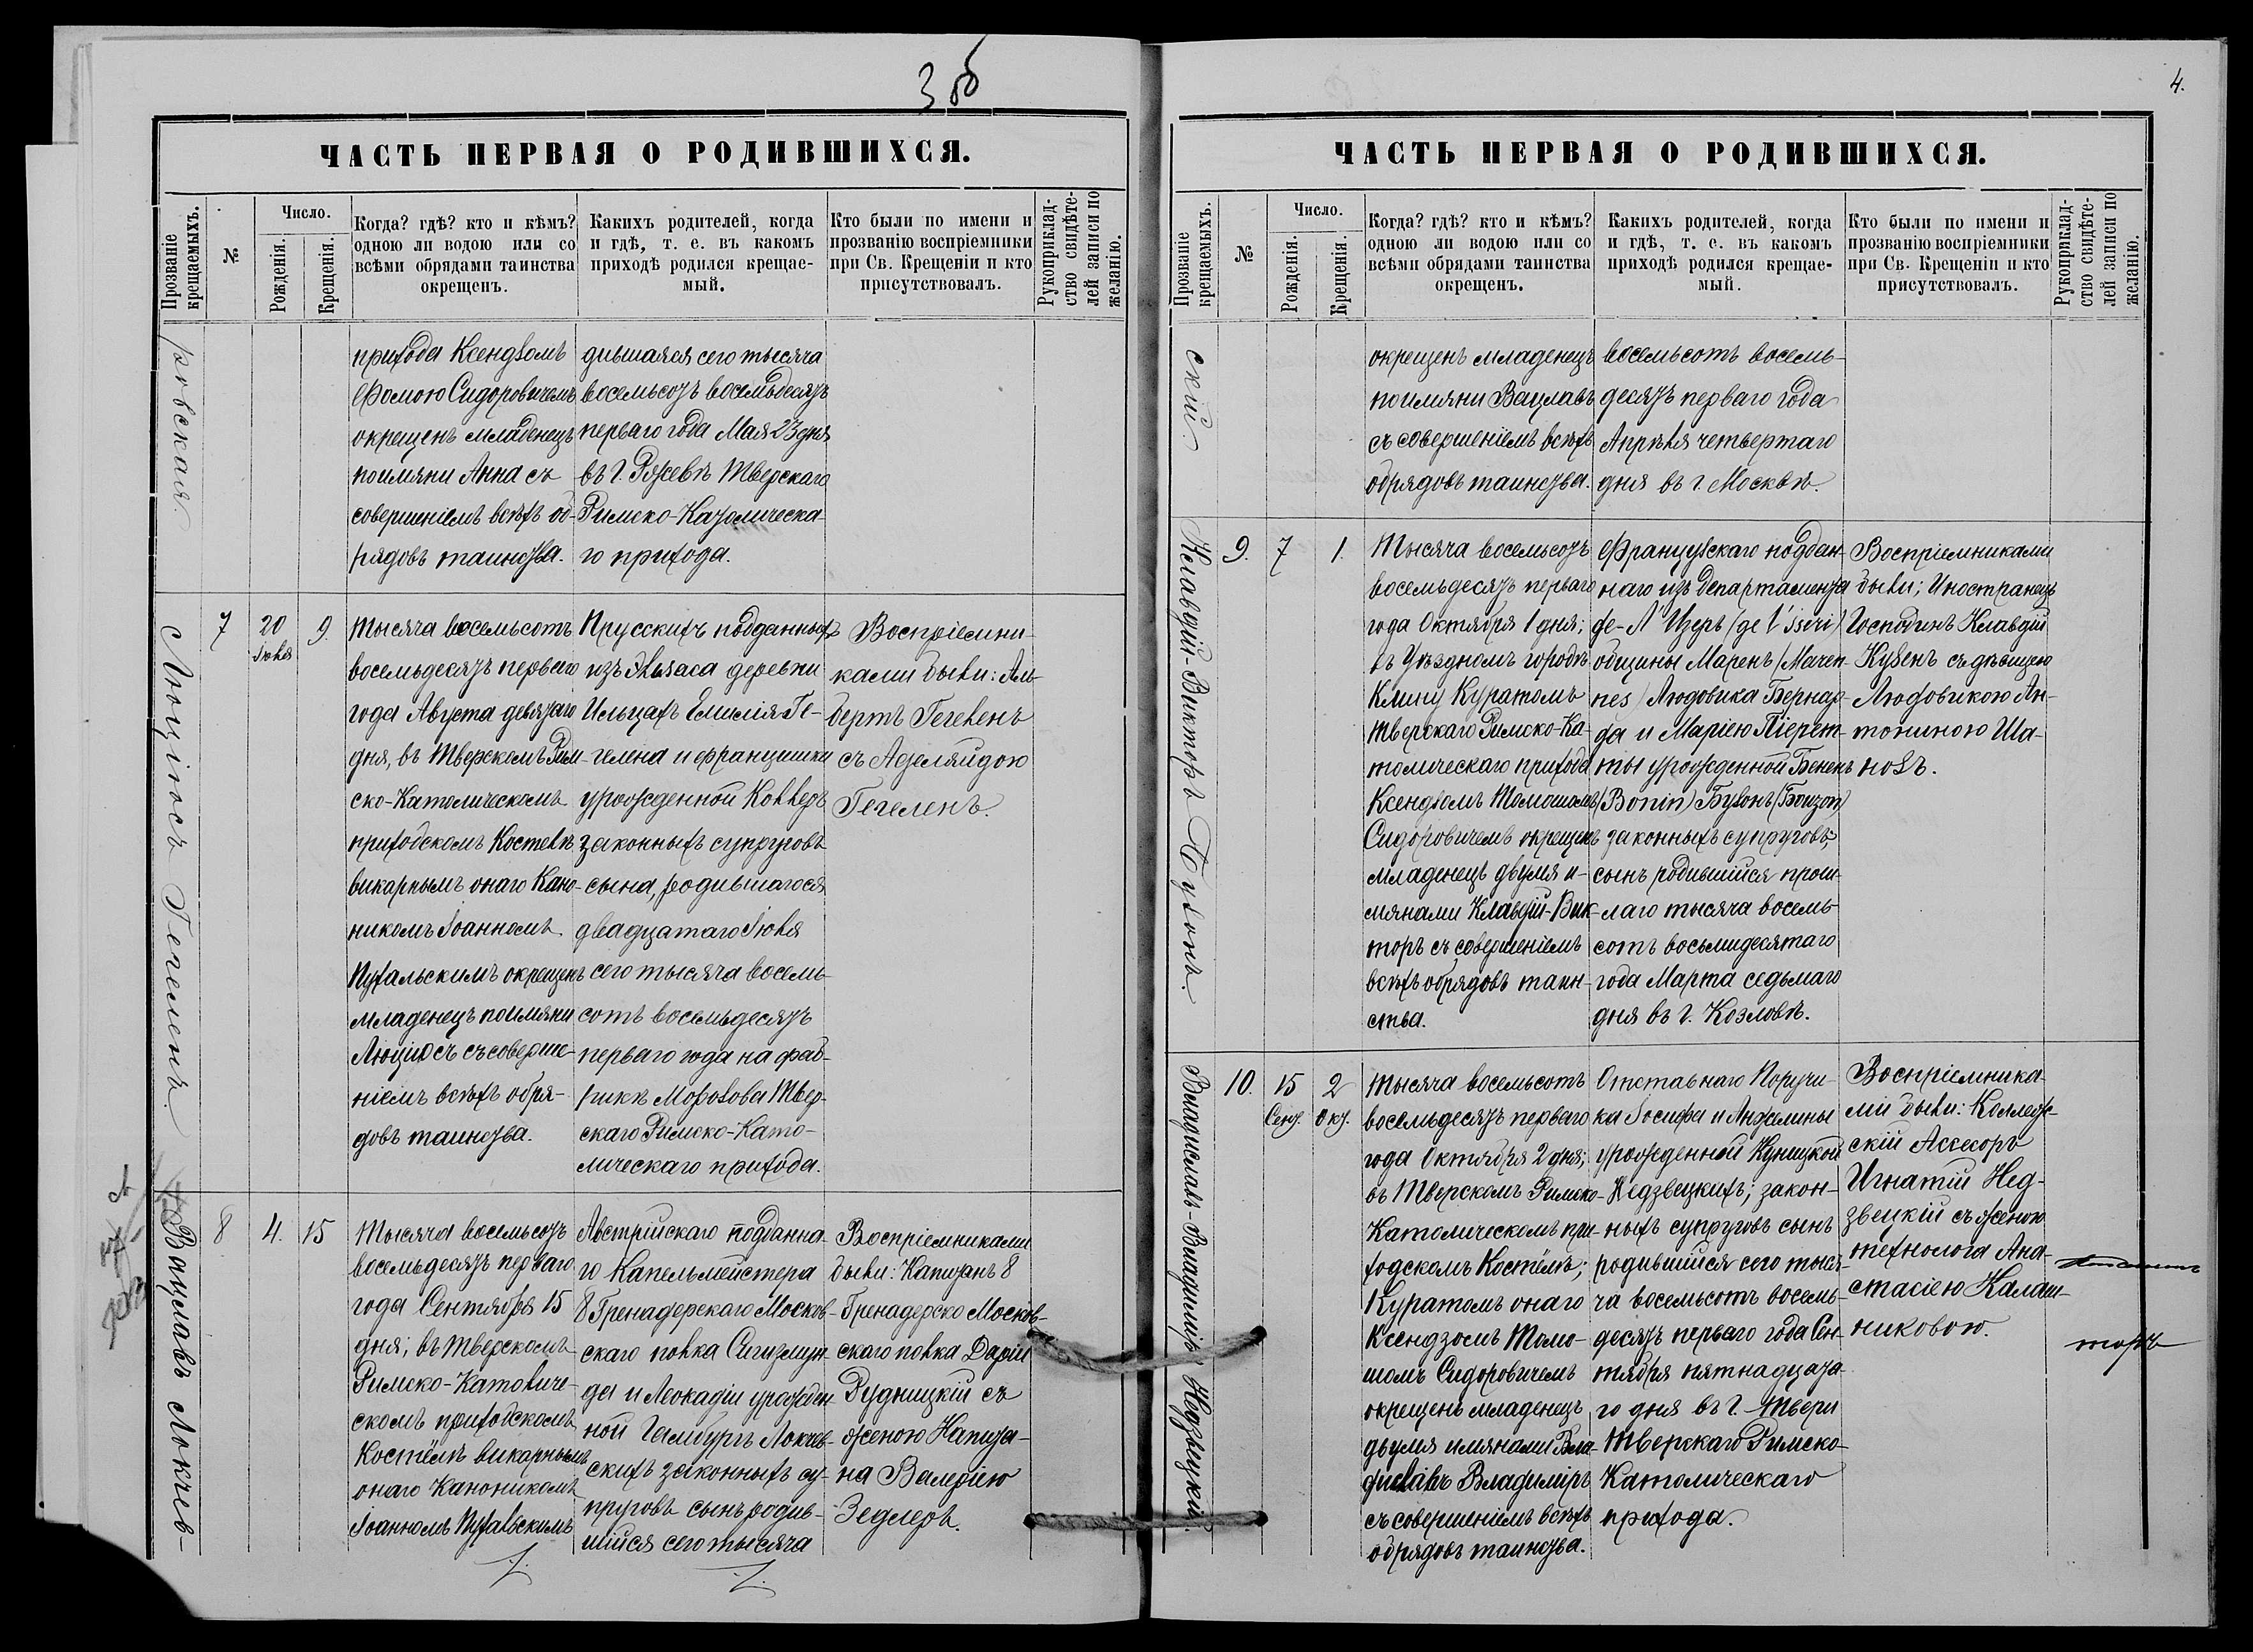 3 об
ЧАСТЬ ПЕРВАЯ О РОДИВШИХСЯ.
Прозваніе крещаемыхъ.
№
Число.
Рожденія.
Крещенія.
Когда? гдѣ? кто и кѣмъ?
одною ли водою или со
всѣми обрядами таинства
окрещенъ.
Какихъ родителей, когда
и гдѣ, т. е. въ какомъ
приходѣ родился крещае-
мый.
Кто были по имени и
прозванію воспріемники
при Св. Крещеніи и кто
присутствовалъ.
Рукоприклад-
ство свидѣте-
лей записи по
желанію.
ровская.
прихода Ксендзомъ
Ѳомою Сидоровичемъ
окрещенъ младенецъ
поимяни Анна съ
совершеніемъ всѣхъ об-
рядовъ таинства.
дившаяся сего тысяча
восемьсотъ восемьдесятъ
перваго года Мая 23 дня
въ г. Ржевѣ Тверскаго
Римско-Католическа-
го прихода.
Люціюсъ Гегеленъ.
7
20
Іюля
9.
Тысяча восемьсотъ
восемьдесятъ перваго
года Августа девятаго
дня, въ Тверскомъ Рим-
ско-Католическомъ
приходскомъ Костелѣ
викарнымъ онаго Кано-
никомъ Іоанномъ
Пухальскимъ окрещенъ
младенецъ поимяни
Люціюсъ съ соверше-
ніемъ всѣхъ обря-
довъ таинства.
Прусскихъ подданныхъ
изъ Эльзаса деревни
Ильцахъ Емилія Ге-
гелена и Францишки
урожденной Коллеръ
законныхъ супруговъ
сына, родившагося
двадцатаго Іюля
сего тысяча восемь-
сотъ восемьдесятъ
перваго года на фаб-
рикѣ Морозова Твер-
скаго Римско-Като-
лическаго прихода.
Воспріемни-
ками были: Аль-
бертъ Гегеленъ
съ Аделяйдою
Гегеленъ.
Вацлавъ Локчев-
8
4.
15
Тысяча восемьсотъ
восемьдесятъ перваго
года Сентября 15
дня; въ Тверскомъ
Римско-Католиче-
скомъ приходскомъ
Костёлѣ викарнымъ
онаго Каноникомъ
Іоанномъ Пухальскимъ
Австрійскаго подданна-
го Капельмейстера
8 Гренадерскаго Москов-
скаго полка Сигизмун-
да и Леокадіи урожден-
ной Гамбургъ Локчев-
скихъ законныхъ су-
пруговъ сынъ родив-
шійся сего тысяча
Воспріемниками
были: Капитанъ 8
Гренадерско Москов-
скаго полка Дарій
Рудницкій съ
женою Капита-
на Валеріею
Зедлеръ.
4.
ЧАСТЬ ПЕРВАЯ О РОДИВШИХСЯ.
Прозваніе крещаемыхъ.
№
Число.
Рожденія.
Крещенія.
Когда? гдѣ? кто и кѣмъ?
одною ли водою или со
всѣми обрядами таинства
окрещенъ.
Какихъ родителей, когда
и гдѣ, т. е. въ какомъ
приходѣ родился крещае-
мый.
Кто были по имени и
прозванію воспріемники
при Св. Крещеніи и кто
присутствовалъ.
Рукоприклад-
ство свидѣте-
лей записи по
желанію.
скій.
окрещенъ младенецъ
поимяни Вацлавъ
съ совершеніемъ всѣхъ
обрядовъ таинства.
восемьсотъ восемь-
десятъ перваго года
Апрѣля четвертаго
дня въ г. Москвѣ.
Клавдій-Викторъ Бузонъ.
9.
7
1.
Тысяча восемьсотъ
восемьдесятъ перваго
года Октября 1 дня;
въ Уѣздномъ городѣ
Клину Куратомъ
Тверскаго Римско-Ка-
толическаго прихода
Ксендзомъ Томошомъ
Сидоровичемъ окрещенъ
младенецъ двумя и-
мянами Клавдій-Вик-
торъ съ совершеніемъ
всѣхъ обрядовъ таин-
ства.
Французскаго поддан-
наго изъ департамента
де-Л'Изеръ (de l'isèri)
общины Маренъ (Maren-
nes) Людовика Бернар-
да и Маріею Піерет-
ты урожденной Бененъ
(Bonin) Бузонъ (Bouzon)
законныхъ супруговъ,
сынъ родившійся прош-
лаго тысяча восемь-
сотъ восьмидесятаго
года Марта седьмаго
дня въ г. Козловѣ.
Воспріемниками
были; Иностранецъ
Господинъ Клавдій
Кузенъ съ дѣвицею
Людовикою Ан-
тониною Ша-
нозъ.
Владиславъ-Владиміръ Недзвецкій.
10.
15
Сент.
2
Окт.
Тысяча восемьсотъ
восемьдесятъ перваго
года Октября 2 дня;
въ Тверскомъ Римско-
Католическомъ при-
ходскомъ Костёлѣ;
Куратомъ онаго
Ксендзомъ Томо-
шомъ Сидоровичемъ
окрещенъ младенецъ
двумя имянами Вла-
диславъ Владиміръ
съ совершеніемъ всѣхъ
обрядовъ таинства.
Отставнаго Поручи-
ка Іосифа и Анжелины
урожденной Куницкой
Недзвецкихъ; закон-
ныхъ супруговъ сынъ
родившійся сего тыся-
ча восемьсотъ восемь-
десятъ перваго года Сен-
тября пятнадцата-
го дня въ г. Твери
Тверскаго Римско-
Католическаго
прихода.
Воспріемника-
ми были: Коллеж-
скій Ассесоръ
Игнатій Нед-
звецкій съ женою
технолога Ана-
стасіею Калаш-
никовою.